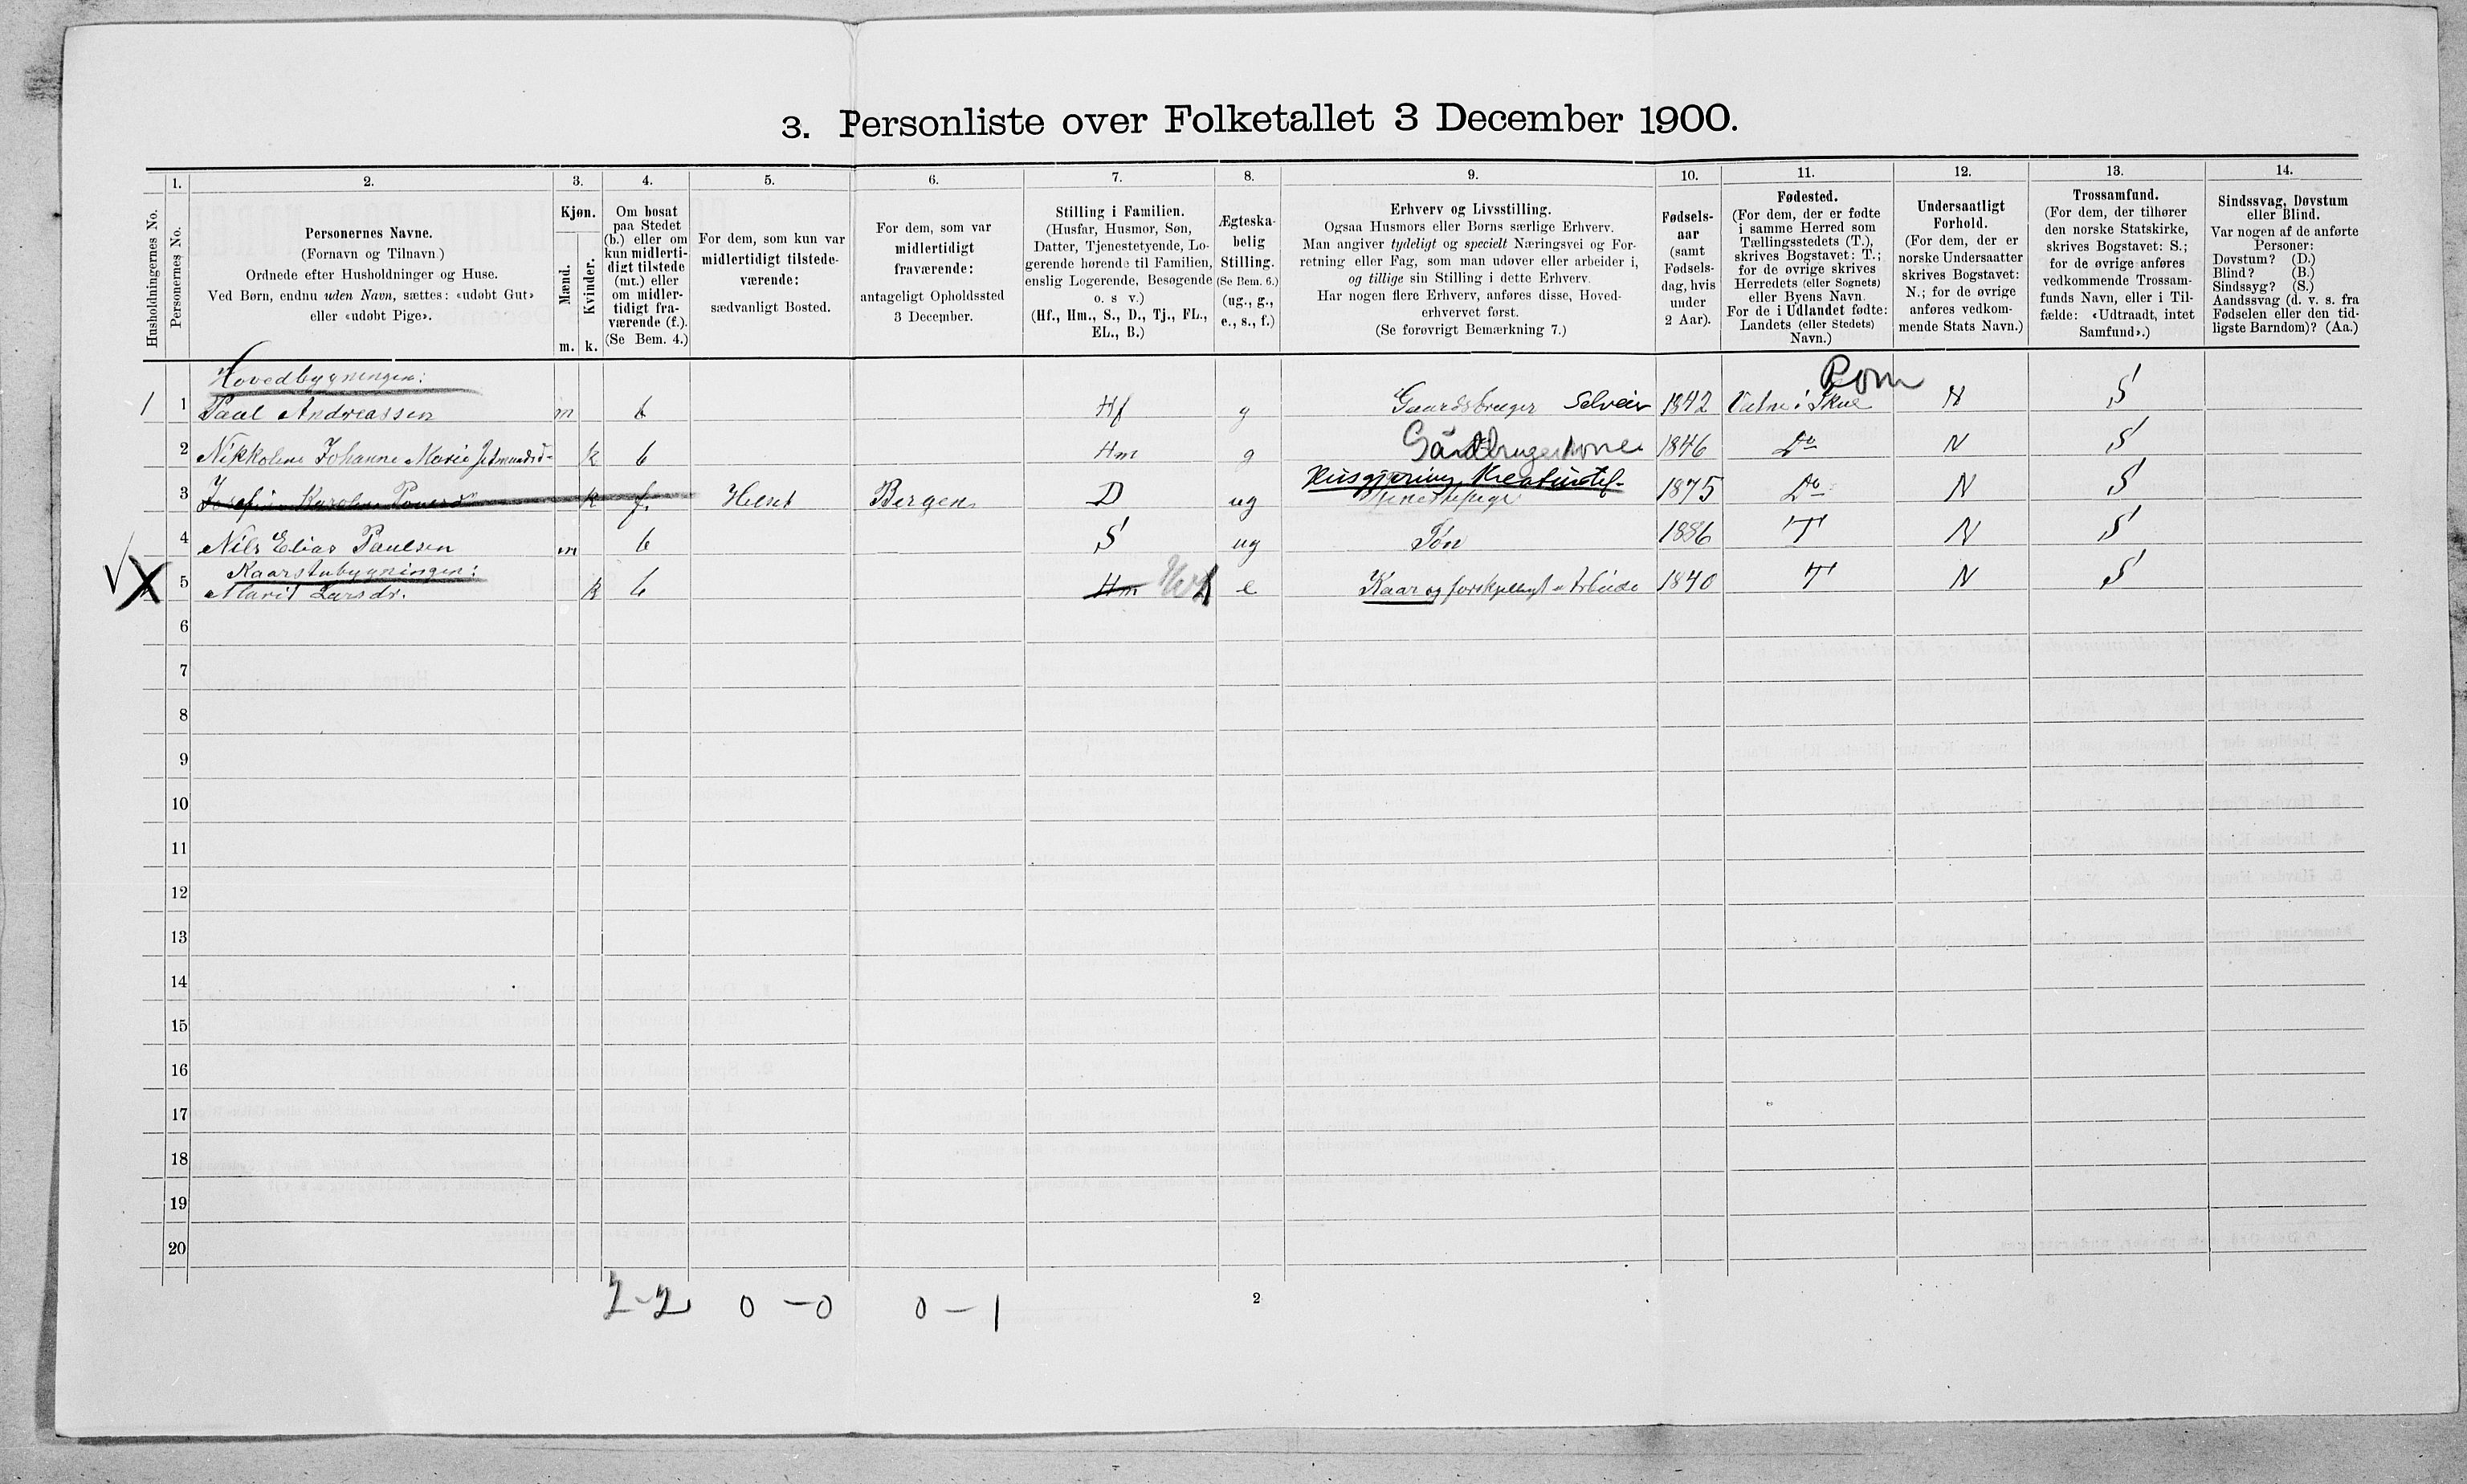 3. Personliste over Folketallet 3 December 1900.
1. 2. 3. 4. 5. 6. 7. 8. 9. 10. 11. 12. 13. 14.
Husholdningernes No.
Personernes No.
Personernes Navne.
(Fornavn og Tilnavn.)
Ordnede efter Husholdninger og Huse.
Ved Børn, endnu uden Navn, sættes: «udøbt Gut»
eller «udøbt Pige».
Kjøn.
Mænd.
Kvinder.
m. k.
Om bosat
paa Stedet
(b.) eller om
kun midlerti-
digt tilstede
(mt.) eller
om midler-
tidigt fra-
værende (f.).
(Se Bem. 4.)
For dem, som kun var
midlertidigt tilstede-
værende:
sædvanligt Bosted.
For dem, som var
midlertidigt
fraværende:
antageligt Opholdssted
3 December.
Stilling i Familien.
(Husfar, Husmor, Søn,
Datter, Tjenestetyende, Lo-
gerende hørende til Familien,
enslig Logerende, Besøgende
o. s v.)
(Hf., Hm., S., D., Tj., FL.,
EL., B.)
Ægteska-
belig
Stilling.
(Se Bem. 6.)
(ug., g.,
e., s., f.)
Erhverv og Livsstilling.
Ogsaa Husmors eller Børns særlige Erhverv.
Man angiver tydeligt og specielt Næringsvei og For-
retning eller Fag, som man udøver eller arbeider i,
og tillige sin Stilling i dette Erhverv.
Har nogen flere Erhverv, anføres disse, Hoved-
erhvervet først.
(Se forøvrigt Bemærkning 7.)
Fødsels-
aar
(samt
Fødsels-
dag, hvis
under
2 Aar).
Fødested.
(For dem, der er fødte
i samme Herred som
Tællingsstedets (T.),
skrives Bogstavet: T.;
for de øvrige skrives
Herredets (eller Sognets)
eller Byens Navn.
For de i Udlandet fødte:
Landets (eller Stedets)
Navn.)
Undersaatligt
Forhold.
(For dem, der er
norske Undersaatter
skrives Bogstavet:
N.; for de øvrige
anføres vedkom-
mende Stats Navn.)
Trossamfund.
(For dem, der tilhører
den norske Statskirke,
skrives Bogstavet: S.;
for de øvrige anføres
vedkommende Trossam-
funds Navn, eller i Til-
fælde: «Udtraadt, intet
Samfund».)
Sindssvag, Døvstum
eller Blind.
Var nogen af de anførte
Personer:
Døvstum? (D.)
Blind? (B.)
Sindssyg? (S.)
Aandssvag (d. v. s. fra
Fødselen eller den tid-
ligste Barndom)? (Aa.)
Hovedbygningen:
1 1 Paul Andreassen m b Hf g Gaardsbruger Selveier 1842 i Rom N S
2 Nikkoline Johanne Marie k b Hm g 1846 Do N S
3 Karoline k f. Bergen D ug Husgjerning Tjenestepige 1875 Do N S
4 Nils Elias Paulsen m b S ug Søn 1886 T N S
Kaarstubygningen:
5 Marit Larsdr. k b Hm e Kaar og forskjelligt Arbeide 1840 T N S
6
7
8
9
10
11
12
13
14
15
16
17
18
19
20
2-2 0-0 0-1
2